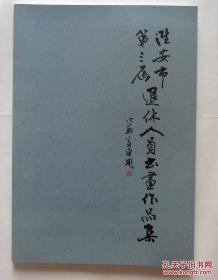 淮安市
第三届
退休人員书畫作品集